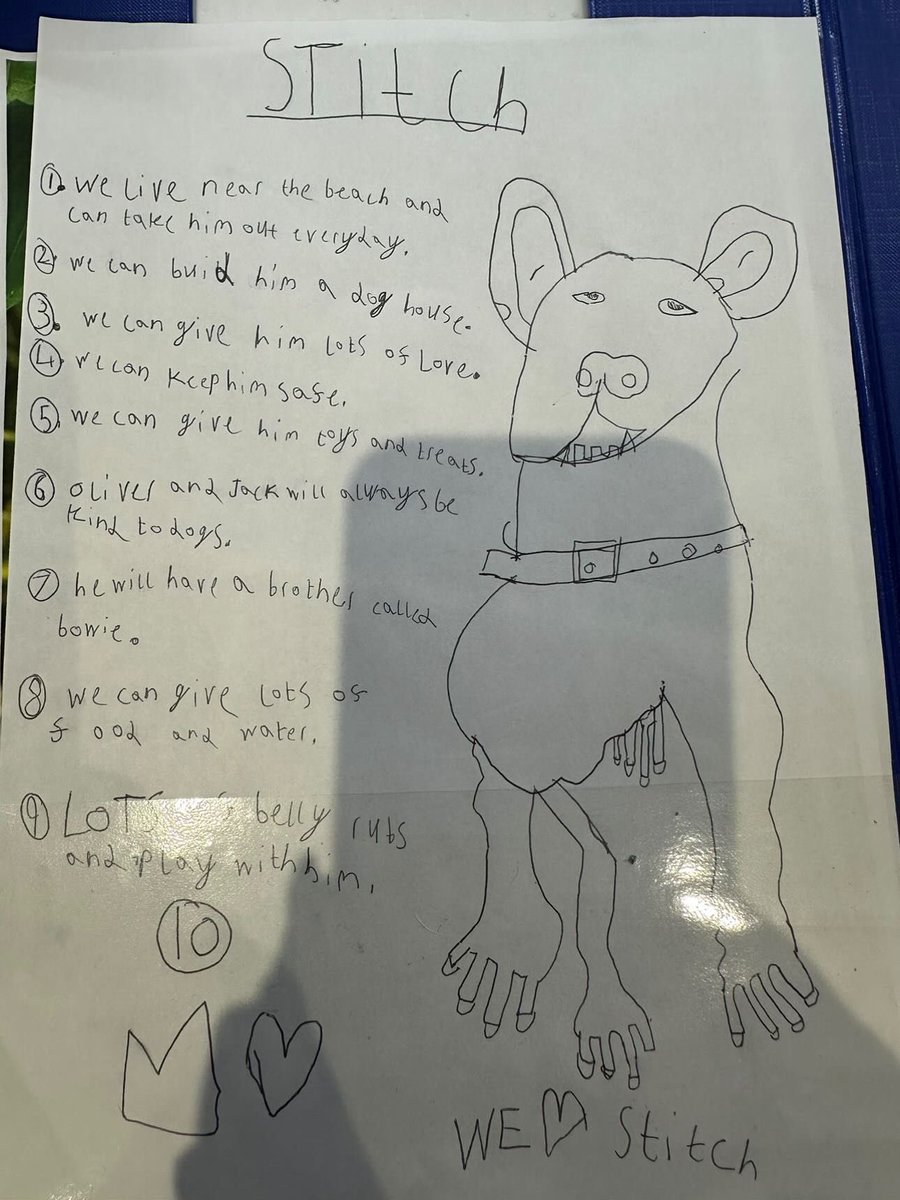 STitch
1. we Live near the beach and
can take him out everyday.
2. we can build him a dog house.
3. we can give him Lots of Love.
4. we can Keep him safe.
5. we can give him toys and treats.
6 OLiver and Jack will always be
Kind to dogs.
7 he will have a brother called
bowie.
8 we can give Lots of
food and water.
9 LOTS of belly rubs
and play with him.
10
WE Stitch